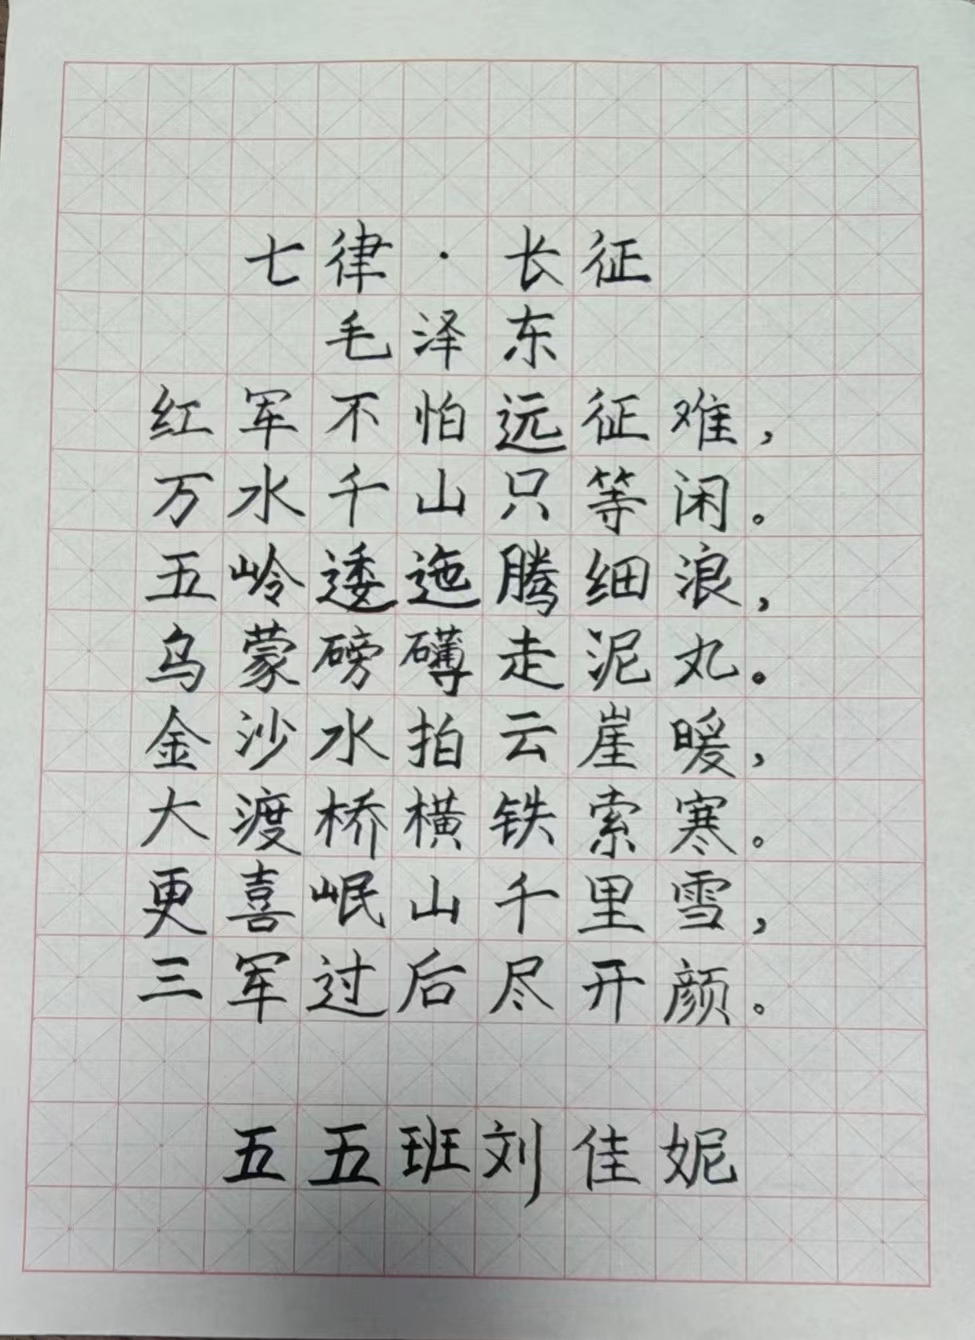 七律·长征
毛泽东
红军不怕远征难，
万水千山只等闲。
五岭逶迤腾细浪，
乌蒙磅礴走泥丸。
金沙水拍云崖暖，
大渡桥横铁索寒。
更喜岷山千里雪，
三军过后尽开颜。
五五班刘佳妮